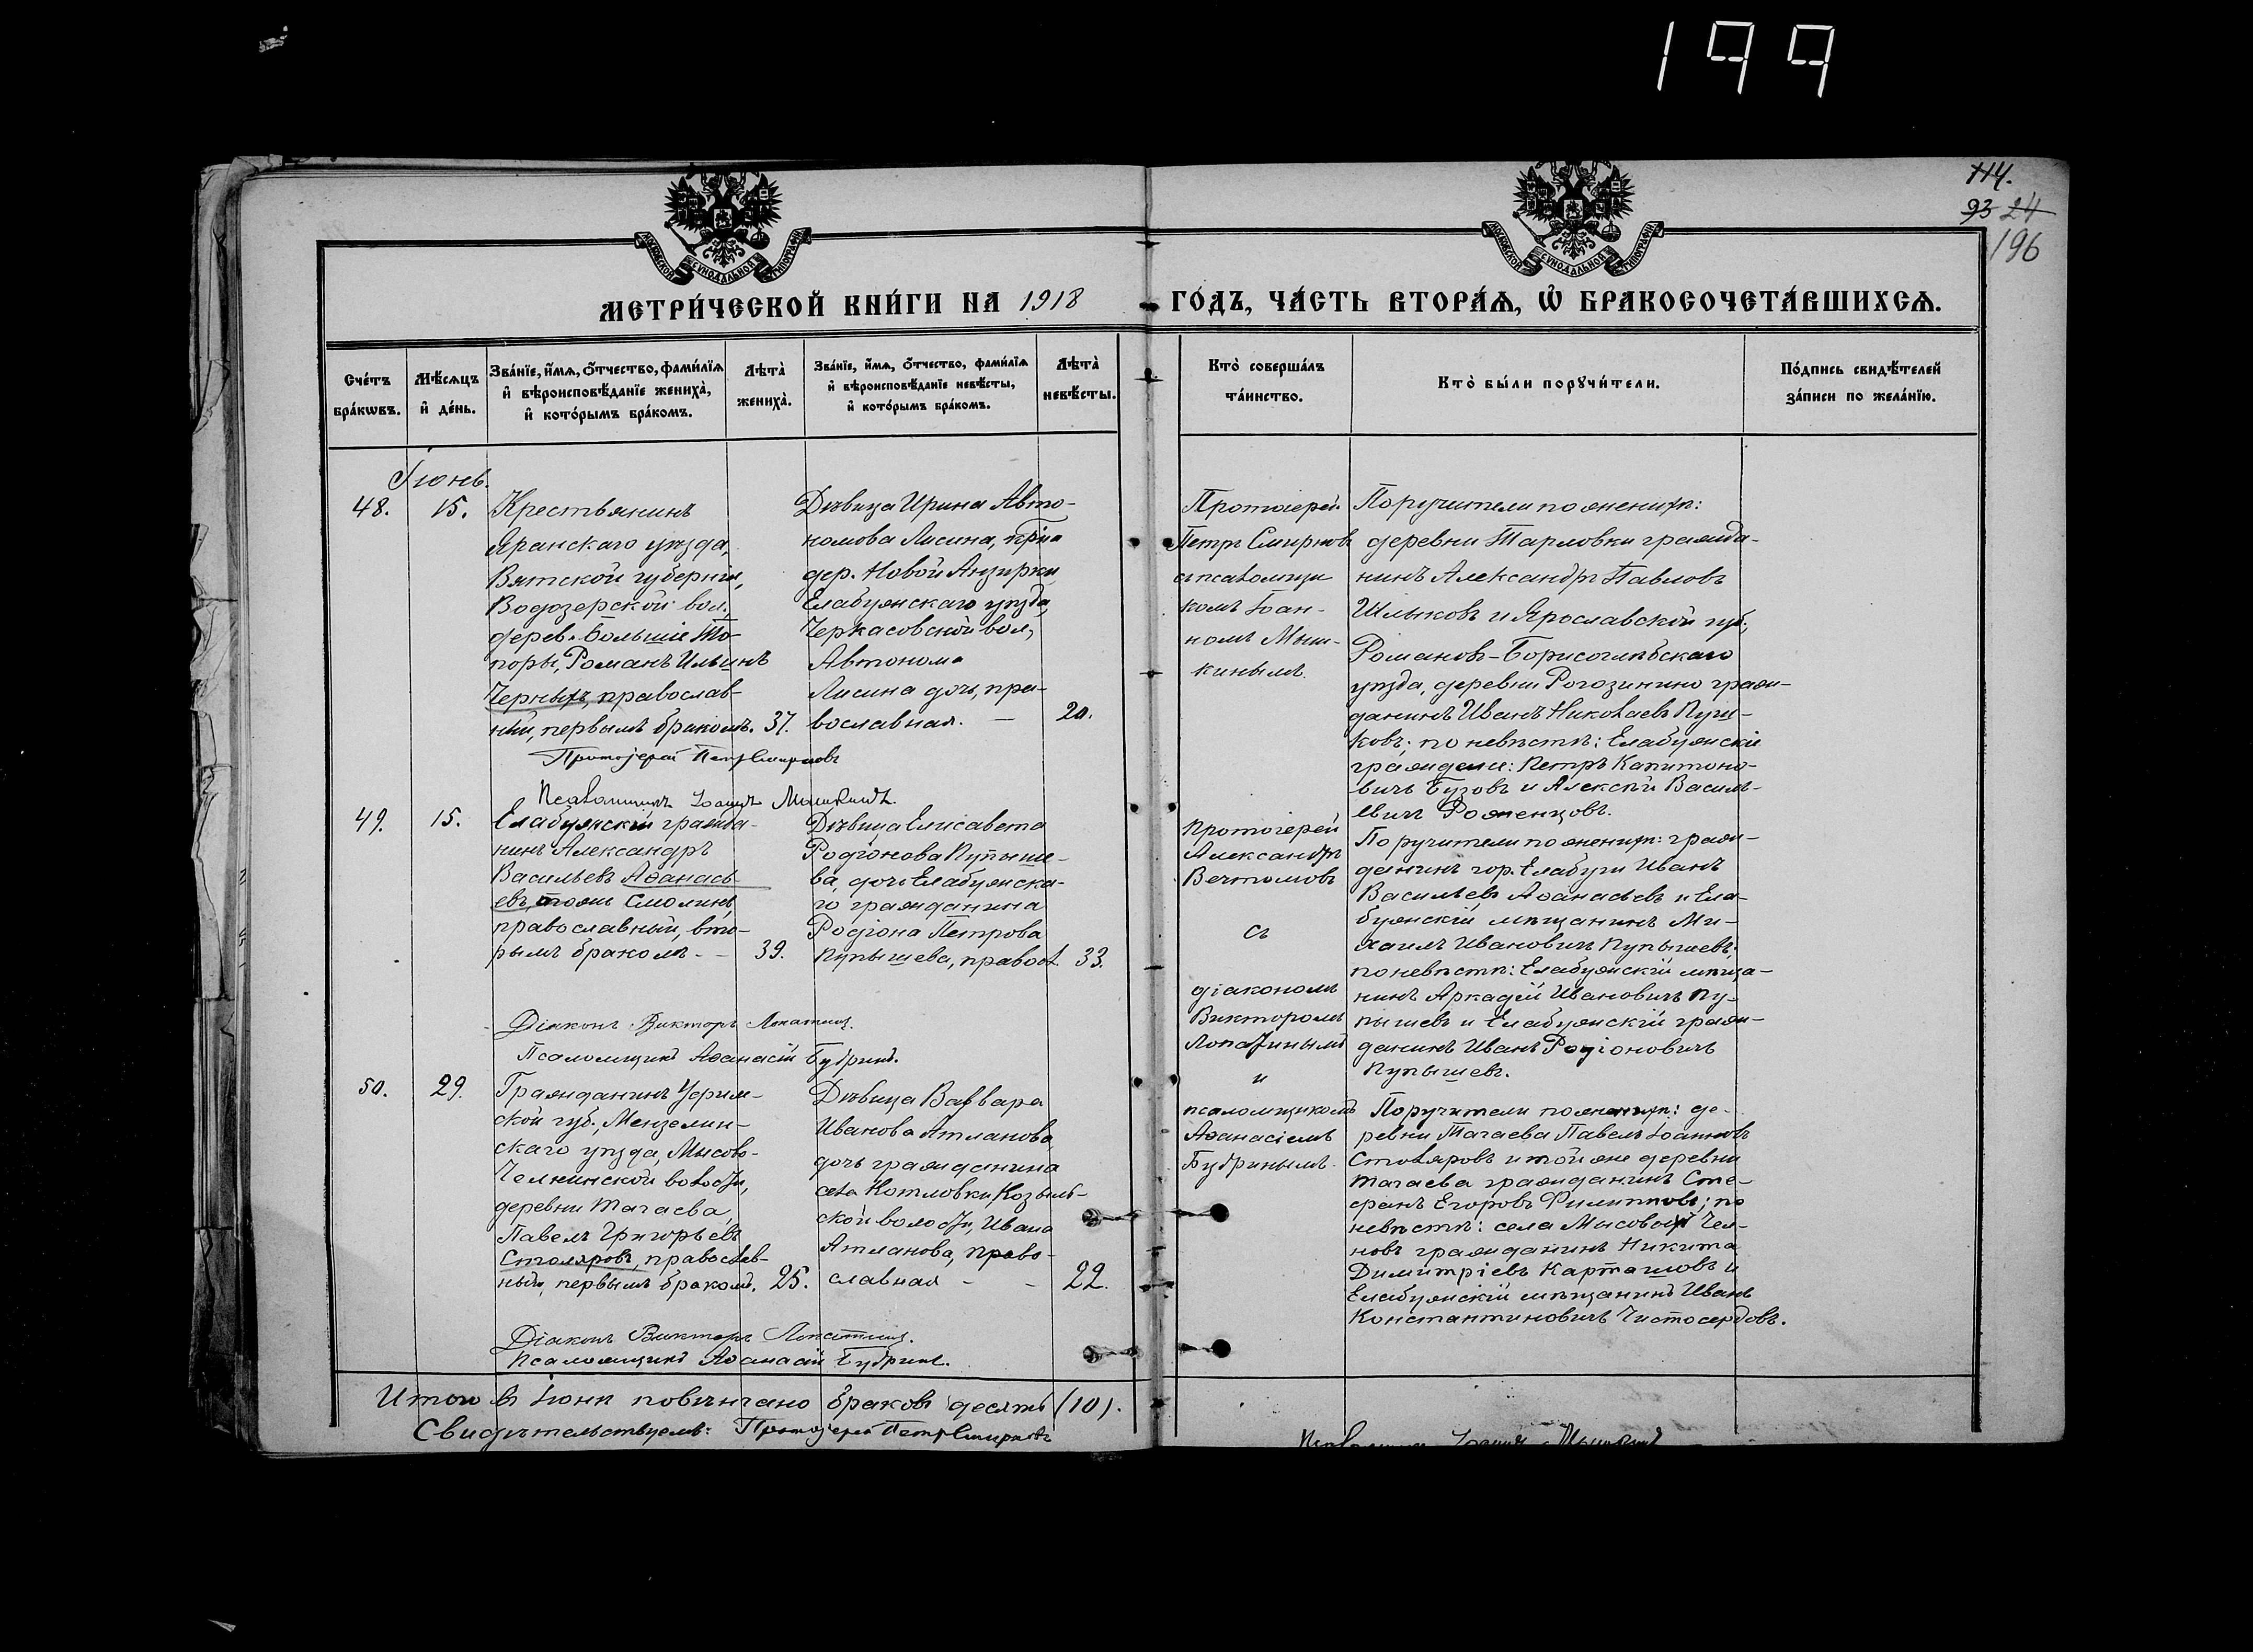 199
114.
93 24
196
МОСКОВСКОЙ СѴНОДАЛЬНОЙ ТИПОГРАФІИ
МОСКОВСКОЙ СѴНОДАЛЬНОЙ ТИПОГРАФІИ
МЕТРИ́ЧЕСКОЙ КНИ́ГИ НА 1918
ГО́ДЪ, ЧА́СТЬ ВТОРА́Ѧ, Ѿ БРАКОСОЧЕТА́ВШИХСѦ.
Сче́тъ
бра́кѡвъ.
Мѣ́сѧцъ
и҆ де́нь.
Зва́нїе, и҆́мѧ, ѻ҆́тчество, фами́лїѧ
и҆ вѣроисповѣ́данїе жениха̀,
и҆ кото́рымъ бра́комъ.
Лѣта̀
жениха̀.
Зва́нїе, и҆́мѧ, ѻ҆́тчество, фами́лїѧ
и҆ вѣроисповѣ́данїе невѣ́сты,
и҆ кото́рымъ бра́комъ.
Лѣта̀
невѣ́сты.
Кто̀ соверша́лъ
та́инство.
Кто̀ бы́ли порꙋчи́тели.
По́дпись свидѣ́телей
за́писи по жела́нїю.
Іюнь.
48.
15.
Крестьянинъ
Яранскаго уѣзда,
Вятской губерніи,
Водозерской вол.,
дерев. Большіе То-
поры, Романъ Ильинъ
Черныхъ, православ-
ный, первымъ бракомъ.
37.
Дѣвица Ирина Авто-
номова Лисина, кр-на
дер. Новой Анзирки
Елабужскаго уѣзда,
Черкасовской вол.,
Автонома
Лисина дочь, пра-
вославная. —
20.
Протоіерей Петръ Смирновъ
Псаломщикъ Іоаннъ Мышкинъ.
Протоіерей
Петръ Смирновъ
съ псаломщи
комъ Іоан-
номъ Мыш-
кинымъ.
Поручители по женихѣ:
деревни Тарловки гражда-
нинъ Александръ Павловъ
Шлыковъ и Ярославской губ.,
Романовъ-Борисоглѣбскаго
уѣзда, деревни Рогозинино граж-
данинъ Иванъ Николаевъ Пуш-
ковъ; по невѣстѣ: Елабужскіе
граждане: Петръ Капитоно-
вичъ Бузовъ и Алексѣй Василь-
евичъ Роженцовъ.
49.
15.
Елабужскій гражда-
нинъ Александръ
Васильевъ Аѳанась-
евъ, онже Смолинъ
православный, вто-
рымъ бракомъ. —
39.
Дѣвица Елисавета
Родіонова Пупыше-
ва, дочь Елабужска-
го гражданина
Родіона Петрова
Пупышева, правосл.
33.
Діаконъ Викторъ Лопатинъ.
Псаломщикъ Аѳанасій Бубринъ.
Протоіерей
Александръ
Вечтомовъ
съ
діакономъ
Викторомъ
Лопатинымъ
и
псаломщикомъ
Аѳанасіемъ
Бубринымъ.
Поручители по женихѣ: граж-
данинъ гор. Елабуги Иванъ
Васильевъ Аѳанасьевъ и Ела-
бужскій мѣщанинъ Ми-
хаилъ Ивановичъ Пупышевъ;
по невѣстѣ: Елабужскій мѣща-
нинъ Аркадій Ивановичъ Пу-
пышевъ и Елабужскій граж-
данинъ Иванъ Родіоновичъ
Пупышевъ.
50.
29.
Гражданинъ Уфим-
ской губ., Мензелин-
скаго уѣзда, Мысово-
Челнинской волости,
деревни Тагаева,
Павелъ Григорьевъ
Столяровъ, православ-
ный, первымъ бракомъ.
25.
Дѣвица Варвара
Иванова Атланова,
дочь гражданина
села Котловки, Козыль-
ской волости, Ивана
Атланова, право-
славная — —
22.
Діаконъ Викторъ Лопатинъ.
Псаломщикъ Аѳанасій Бубринъ.
Поручители по женихѣ: де-
ревни Тагаева Павелъ Іоанновъ
Столяровъ и той же деревни
Тагаева гражданинъ Сте-
фанъ Егоровъ Филипповъ; по
невѣстѣ: села Мысовыхъ Чел-
новъ гражданинъ Никита
Димитріевъ Карташовъ и
Елабужскій мѣщанинъ Иванъ
Константиновичъ Чистосердовъ.
Итого въ Іюнѣ повѣнчано браковъ десять (10).
Свидѣтельствуемъ: Протоіерей Петръ Смирновъ
Псаломщикъ Іоаннъ Мышкинъ